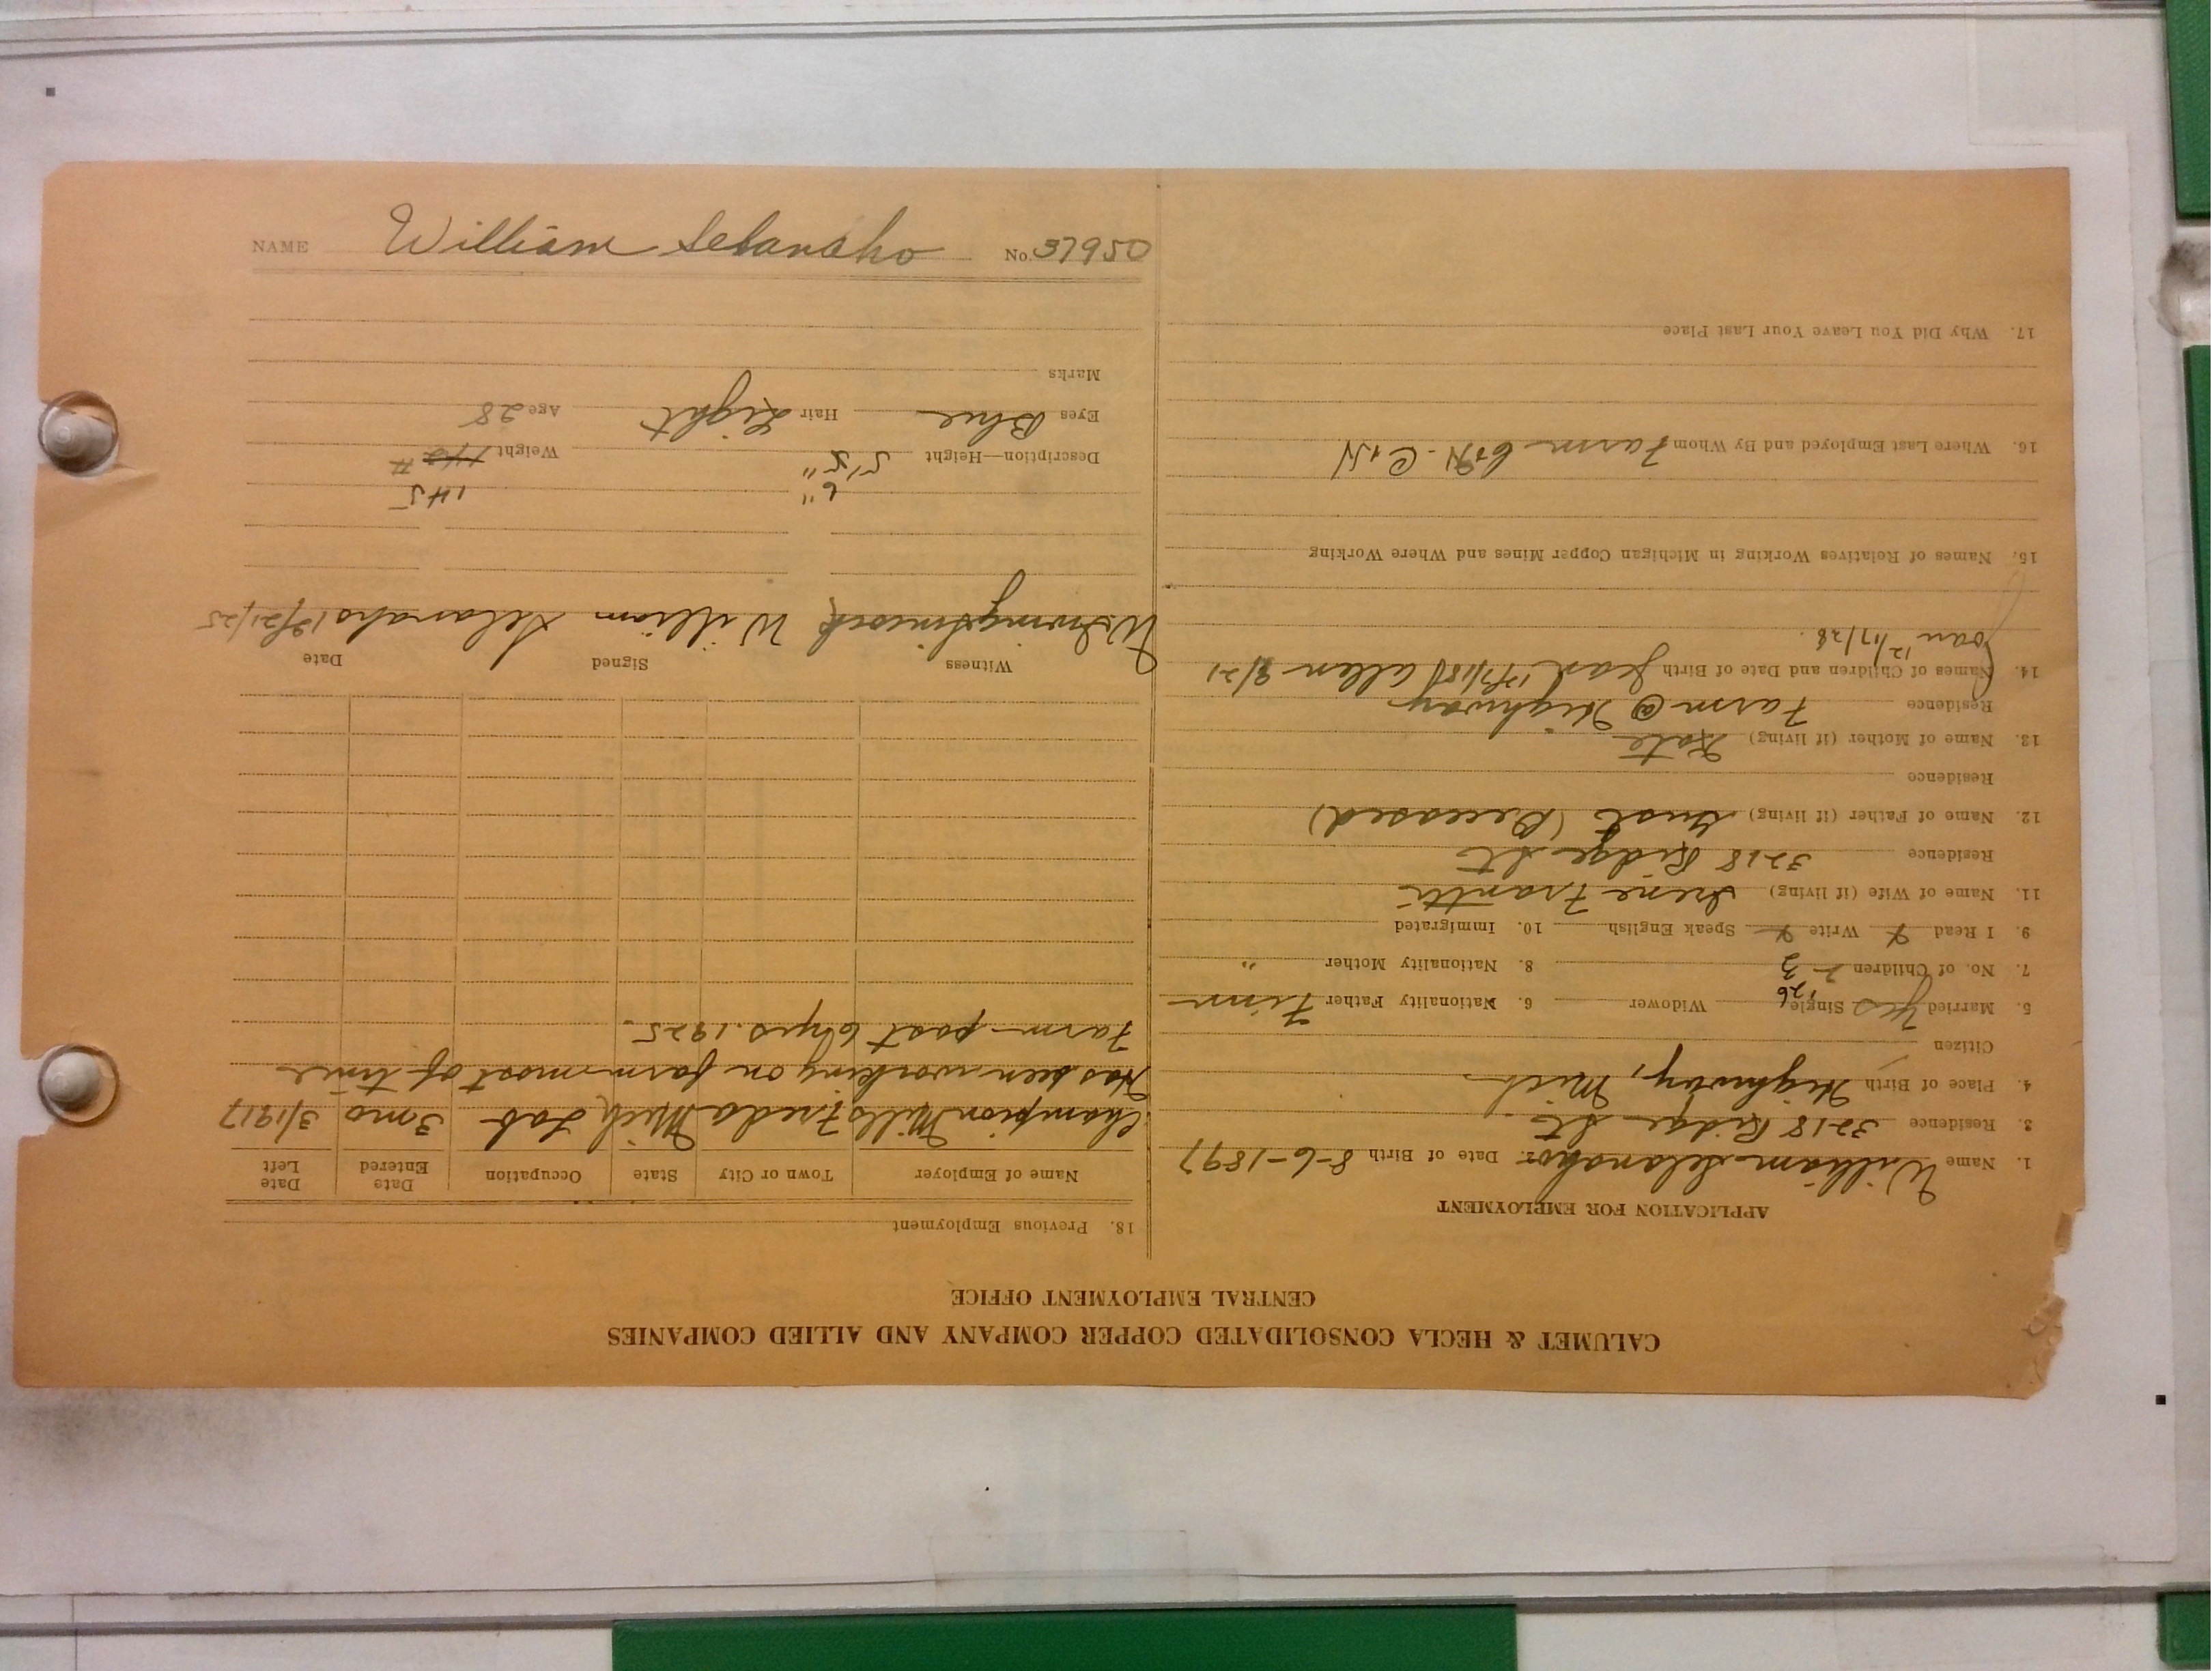 CALUMET & HECLA CONSOLIDATED COPPER COMPANY AND ALLIED COMPANIES
CENTRAL EMPLOYMENT OFFICE
APPLICATION FOR EMPLOYMENT
1. Name William 2. Date of Birth 8-6-1897
3. Residence 3218 Ridge St.
4. Place of Birth Highway, Mich.
Citizen
5. Married Yes Single Widower 6. Nationality Father Finn
7. No. of Children 2 3 8. Nationality Mother "
9. I Read Write Speak English 10. Immigrated
11. Name of Wife (if living) Irene Frantti
Residence 3218 Ridge St
12. Name of Father (if living) Gust (Deceased)
Residence
13. Name of Mother (if living) Kate
Residence Farm @ Highway
14. Names of Children and Date of Birth allen 8/21
Joan 12/17/28.
15. Names of Relatives Working in Michigan Copper Mines and Where Working
16. Where Last Employed and By Whom Farm
17. Why Did You Leave Your Last Place
18. Previous Employment
Name of Employer Town or City State Occupation Date Entered Date Left
Champion Mills Freda Mich Lab 3 mo 3/1917
Has been working on farm most of time
Farm past 6 yrs. 1925.
Witness Signed Date
William 12/21/25
6" 145
Description—Height 5'5" Weight 142 #
Eyes Blue Hair Light Age 28
Marks
NAME William No. 37950